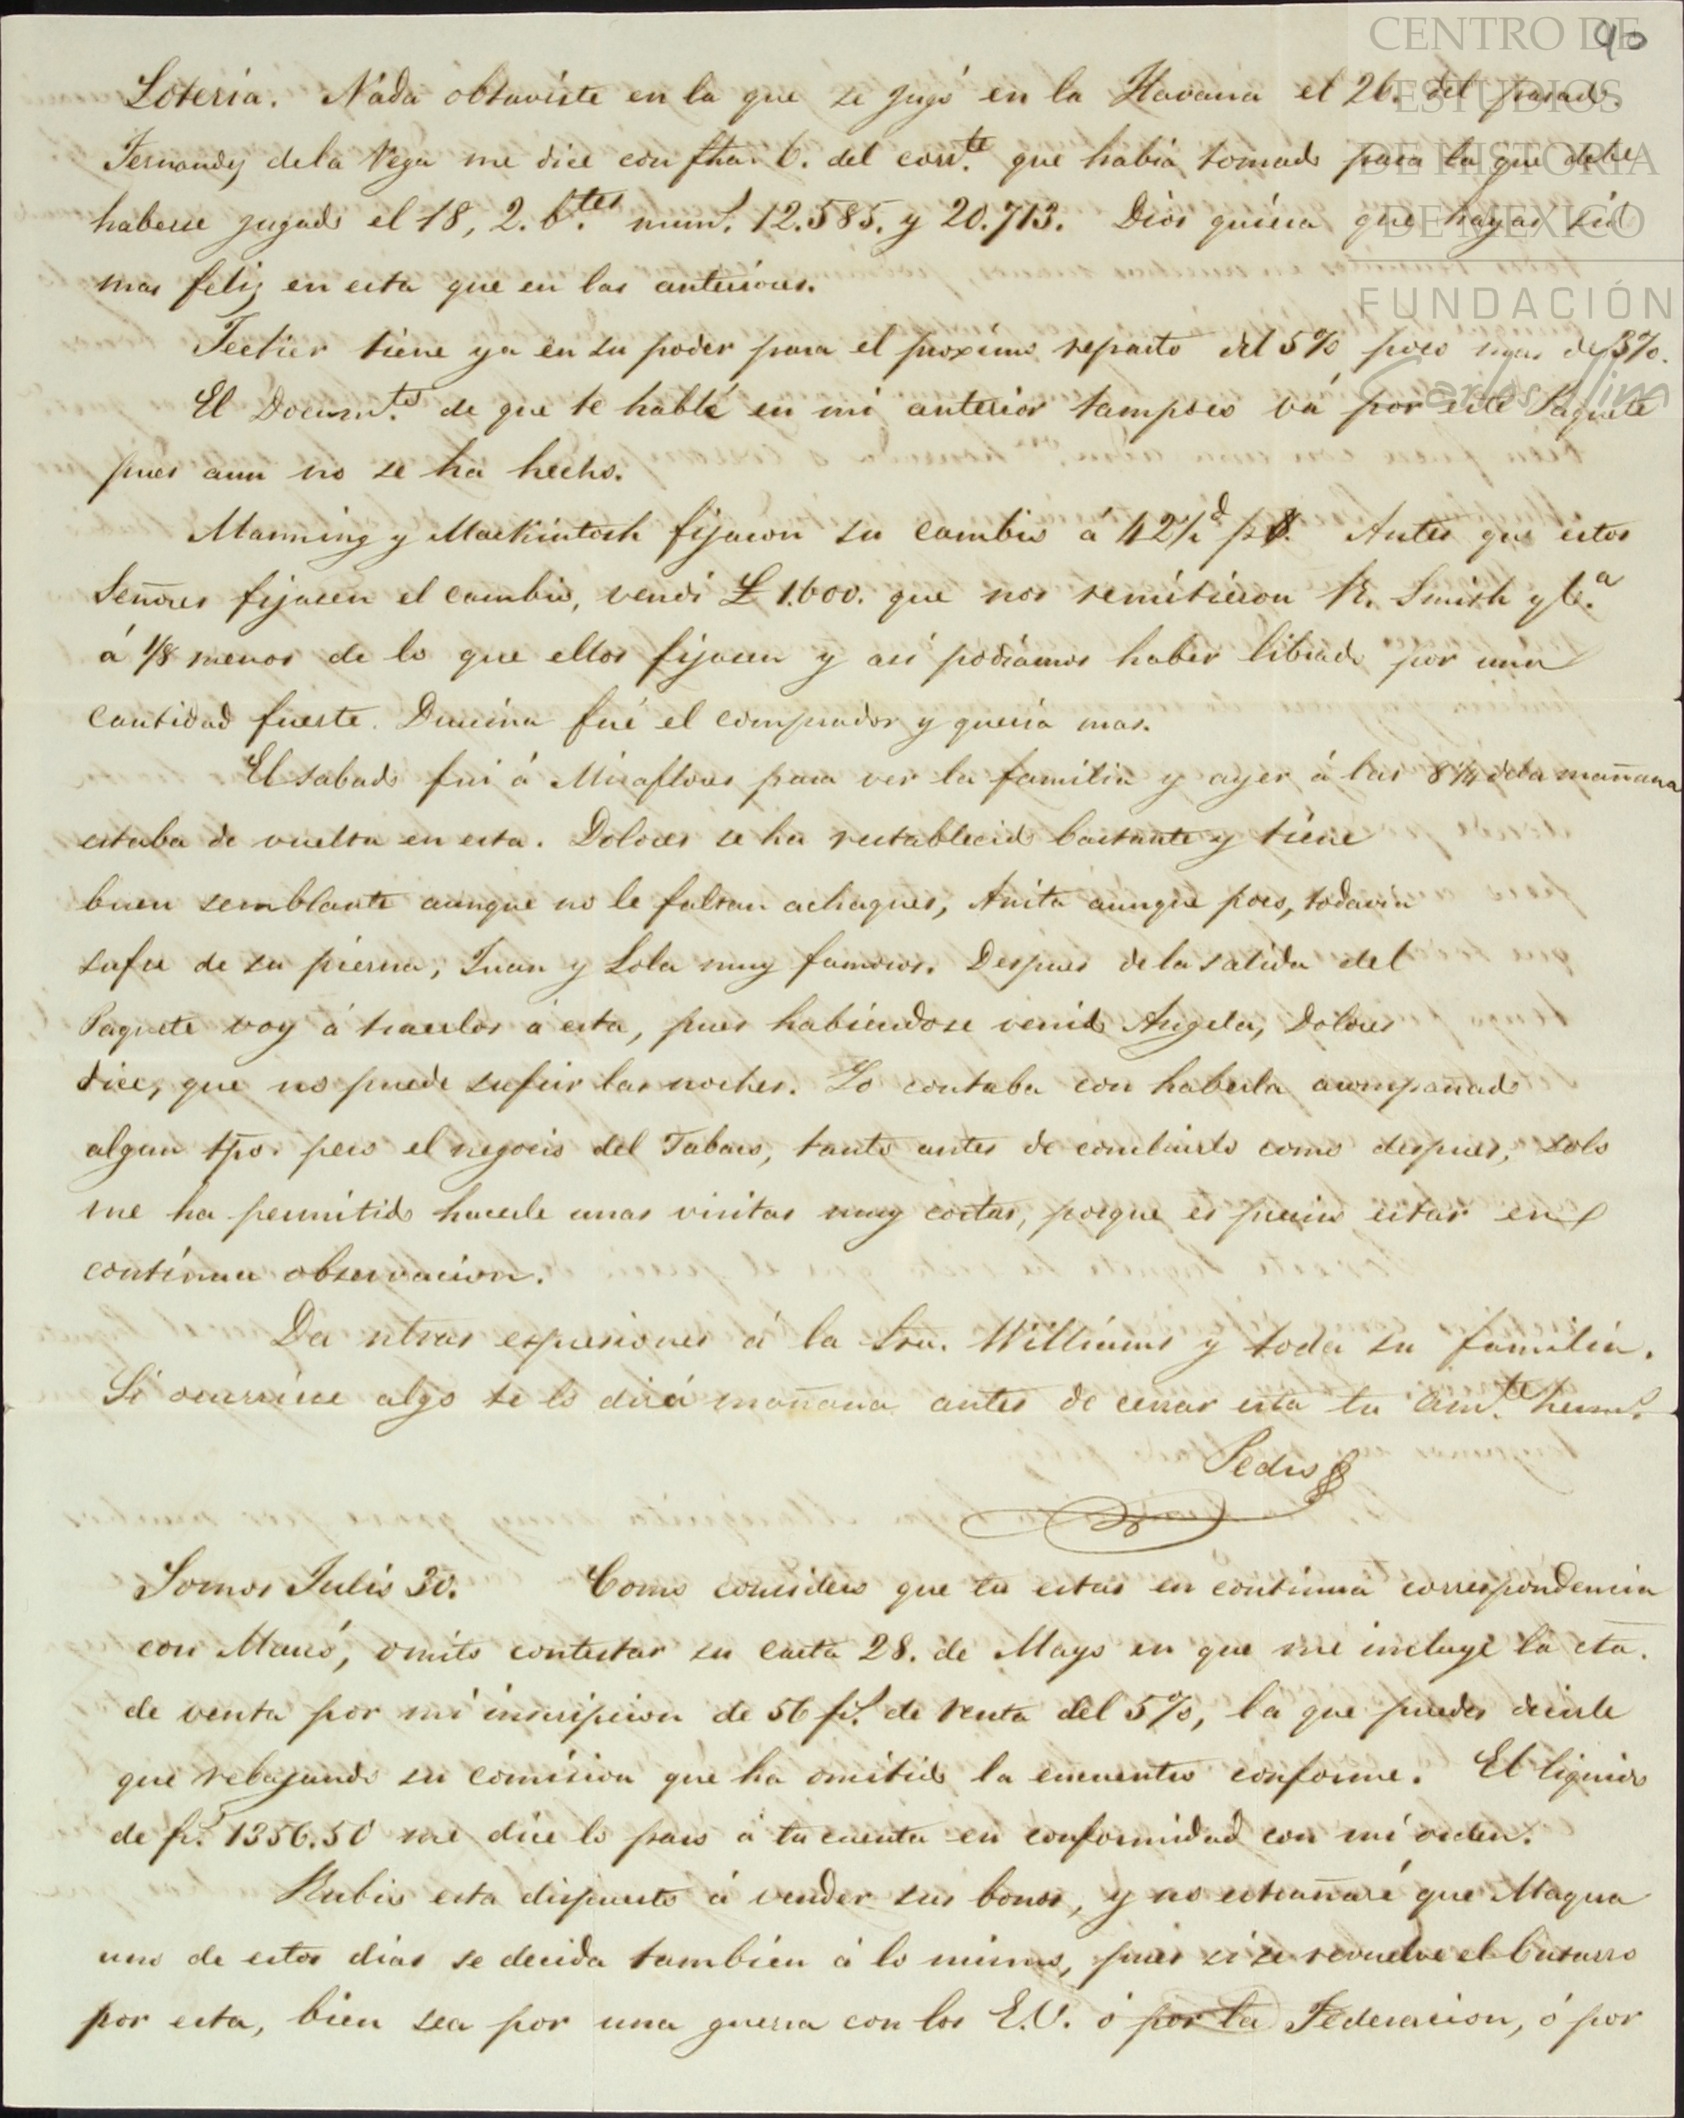 90
CENTRO DE
ESTUDIOS
DE HISTORIA
DE MEXICO
FUNDACIÓN
Carlos Slim
Loteria. Nada obtuviste en la que se jugó en la Havana el 26. del pasado.
Fernandz dela Vega me dice con fha. 6. del corrte. que habia tomado para la que debe
haberse jugado el 18, 2. btes. nums. 12.585. y 20.713. Dios quiera que hayas sido
mas feliz en esta que en las anteriores.
Tectier tiene ya en su poder para el proximo reparto del 5% poco mas de 3%.
El Documto. de que te hablé en mi anterior tampoco vá por este Paquete
pues aun no se ha hecho.
Manning y Mackintosh fijaron su cambio á 42½d p$. Antes que estos
Señores fijasen el cambio, vendi £ 1.600. que nos remitieron R. Smith y Ca.
á 1/8 menos de lo que ellos fijasen y asi podiamos haber librado por una
cantidad fuerte. Dunina fué el comprador y queria mas.
El sabado fui á Miraflores para ver la familia y ayer á las 8¼ dela mañana
estaba de vuelta en esta. Dolores se ha restablecido bastante y tiene
buen semblante aunque no le faltan achaques, Anita aunque poco, todavia
sufre de su pierna, Juan y Lola muy famosos. Despues dela salida del
Paquete voy á traerlos á esta, pues habiendose venido Angela, Dolores
dice, que no puede sufrir las noches. Yo contaba con haberla acompañado
algun tpo. pero el negocio del Tabaco, tanto antes de concluirlo como despues, solo
me ha permitido hacerle unas visitas muy cortas, porque es preciso estar en
continua observacion.
Da ntras espresiones á la Sra. Williams y toda su familia.
Si ocurriese algo te lo dirá mañana antes de cerrar esta tu Amte. hermo.
Pedro
Somos Julio 30. Como considero que tu estas en continua correspondencia
con Mauó, omito contestar su carta 28. de Mayo en que me incluye la cta.
de venta por mi inscripcion de 56 fs. de renta del 5%, la que puedes decirle
que rebajando su comision que ha omitido la encuentro conforme. El liquido
de fs. 1356.50 me dice lo pasó á tu cuenta en conformidad con mi orden.
Rubio esta dispuesto á vender sus bonos, y no estrañaré que Magua
uno de estos dias se decida tambien á lo mismo, pues si se revuelve el cotarro
por esta, bien sea por una guerra con los E.U. ó por la Federacion, ó por